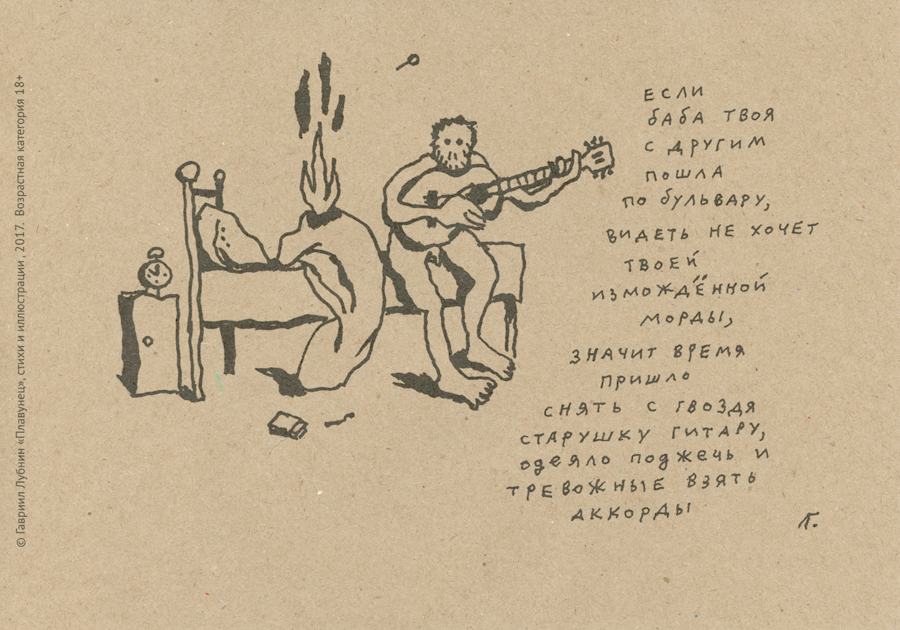 © Гавриил Лубнин «Плавунец», стихи и иллюстрации, 2017. Возрастная категория 18+
если
баба твоя
с другим
пошла
по бульвару,
видеть не хочет
твоей
измождённой
морды,
значит время
пришло
снять с гвоздя
старушку гитару,
одеяло поджечь и
тревожные взять
аккорды
Г.